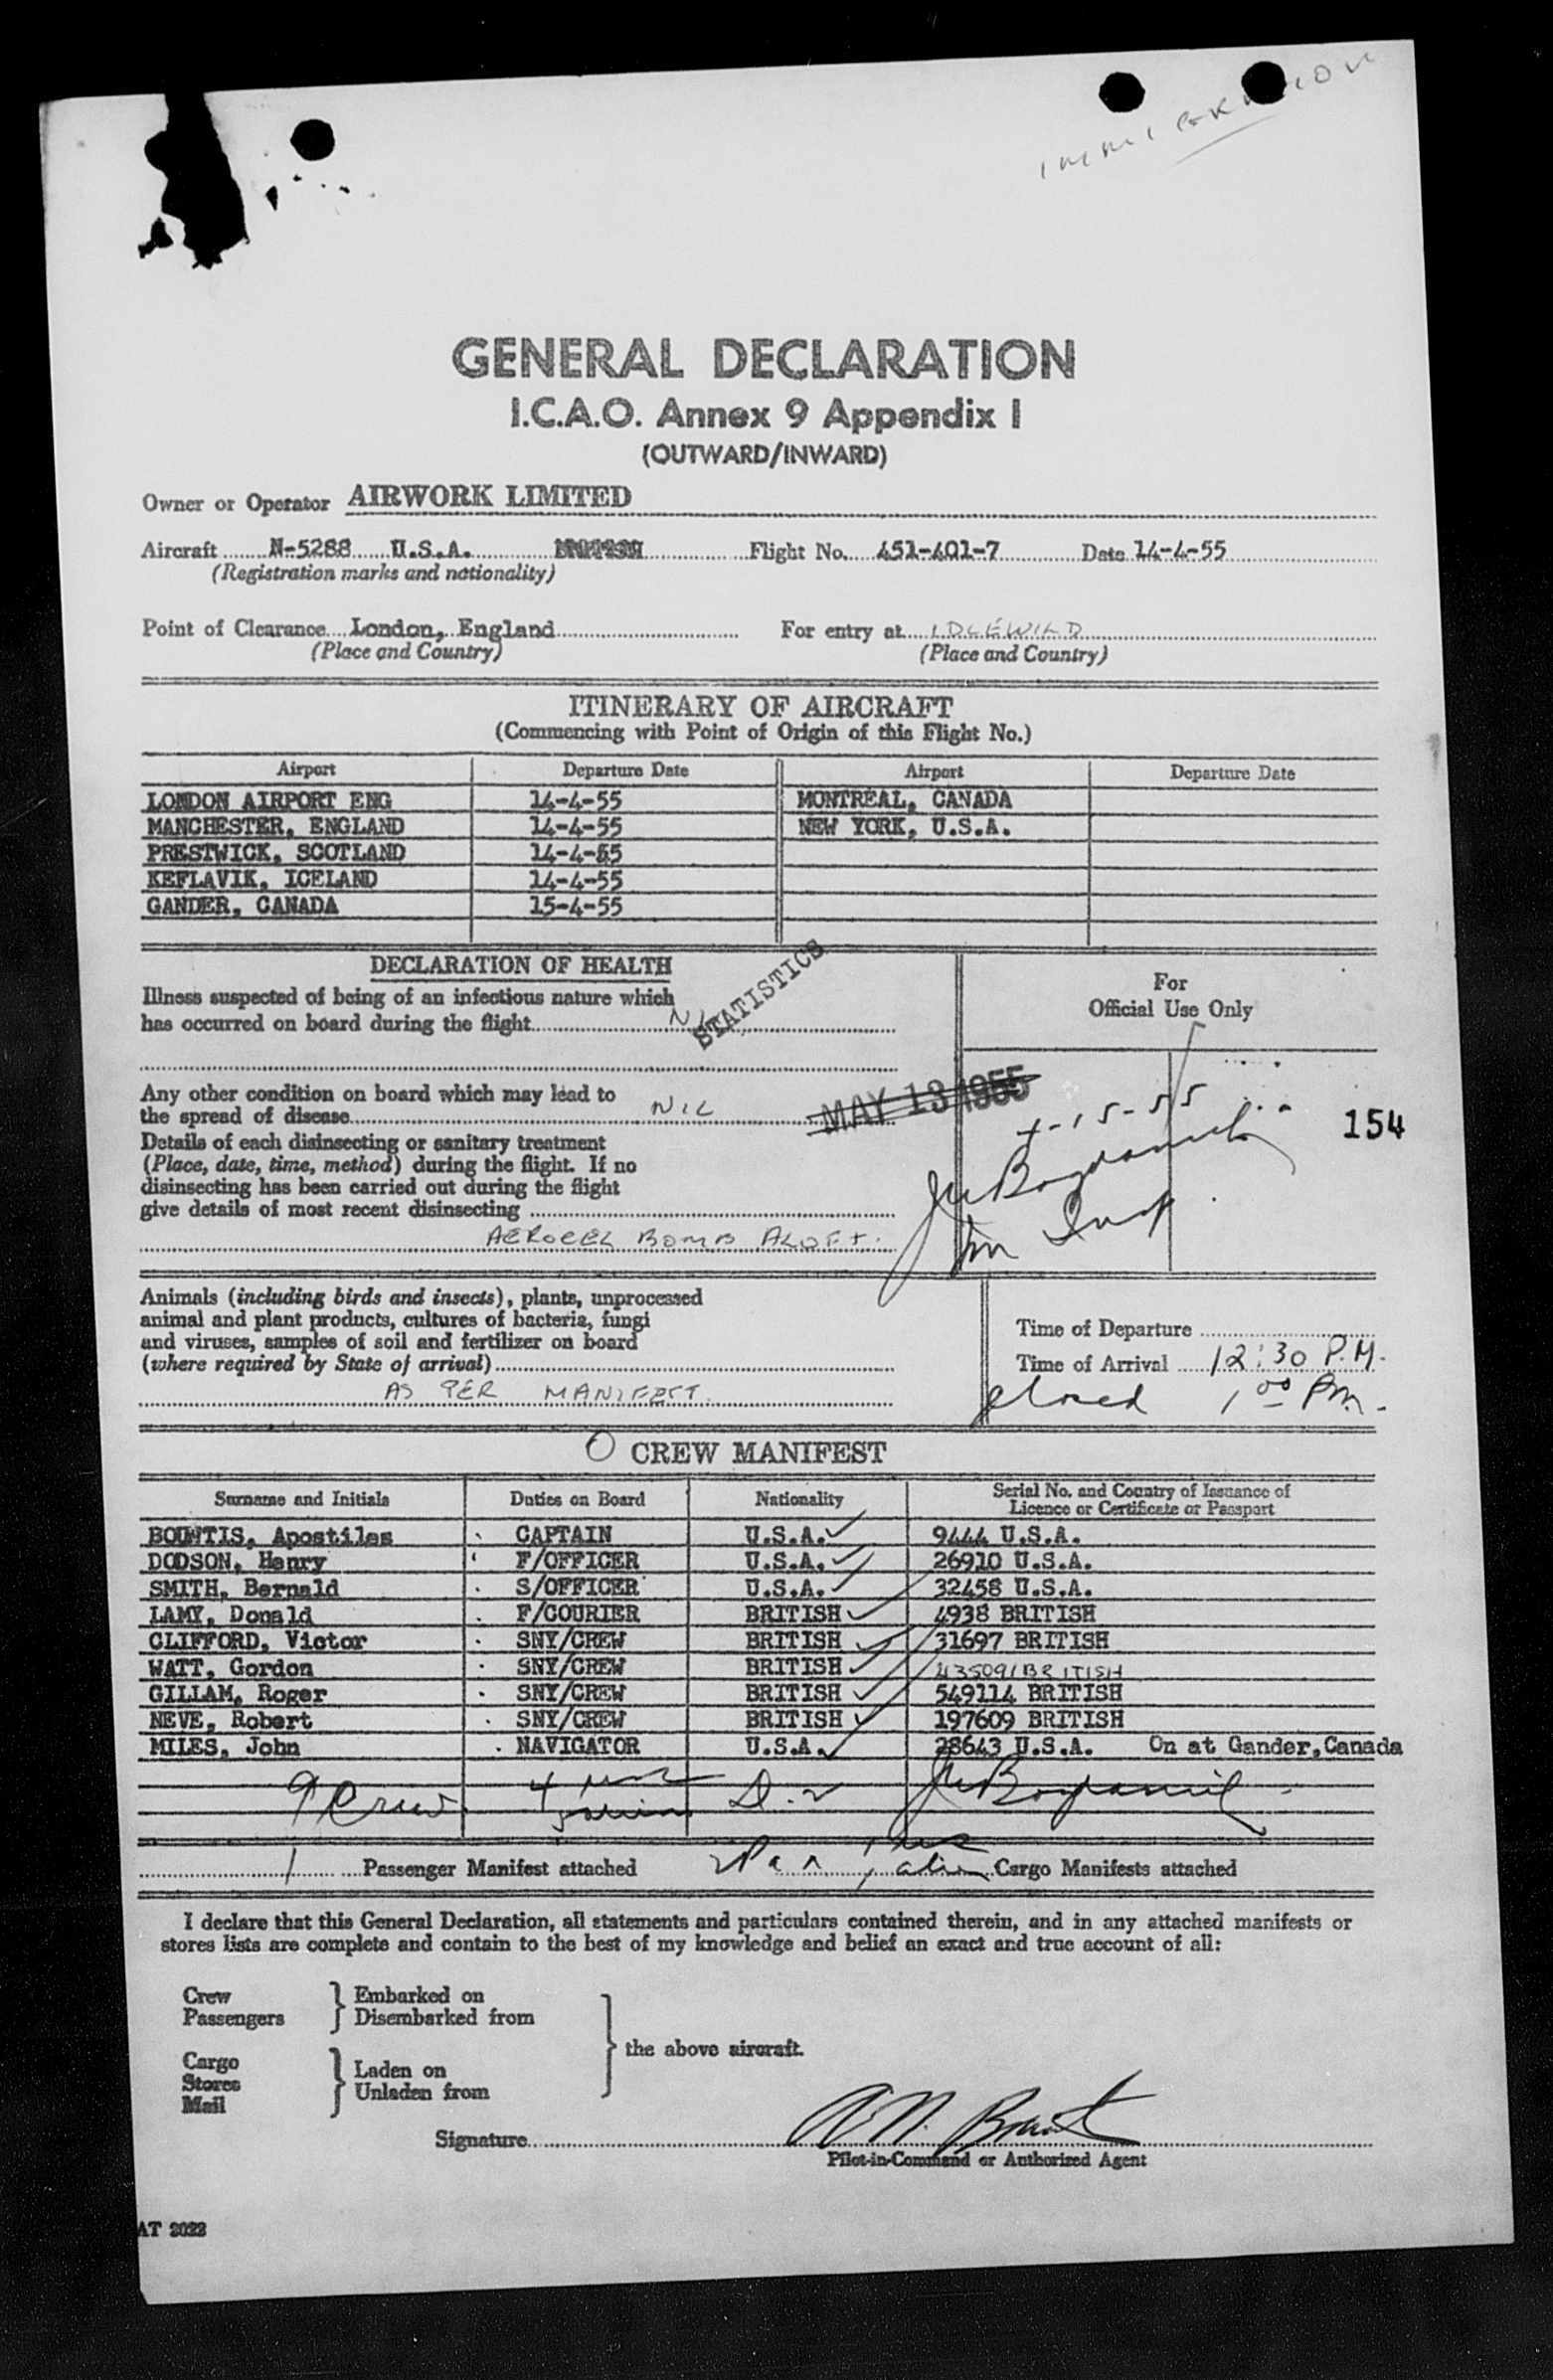 IMMIGRATION
GENERAL DECLARATION
I.C.A.O. Annex 9 Appendix I
(OUTWARD/INWARD)
Owner or Operator AIRWORK LIMITED
Aircraft N-5288 U.S.A. Flight No. 451-401-7 Date 14-4-55
(Registration marks and nationality)
Point of Clearance London, England For entry at IDLEWILD
(Place and Country) (Place and Country)
ITINERARY OF AIRCRAFT
(Commencing with Point of Origin of this Flight No.)
Airport Departure Date Airport Departure Date
LONDON AIRPORT ENG 14-4-55 MONTREAL, CANADA
MANCHESTER, ENGLAND 14-4-55 NEW YORK, U.S.A.
PRESTWICK, SCOTLAND 14-4-55
KEFLAVIK, ICELAND 14-4-55
GANDER, CANADA 15-4-55
DECLARATION OF HEALTH
STATISTICS
For
Official Use Only
Illness suspected of being of an infectious nature which
has occurred on board during the flight NIL
Any other condition on board which may lead to
the spread of disease NIL
MAY 13 1955
4-15-55
154
Details of each disinsecting or sanitary treatment
(Place, date, time, method) during the flight. If no
disinsecting has been carried out during the flight
give details of most recent disinsecting
AEROCEL BOMB ALOFT.
Imm Insp
Animals (including birds and insects), plants, unprocessed
animal and plant products, cultures of bacteria, fungi
and viruses, samples of soil and fertilizer on board
(where required by State of arrival)
AS PER MANIFEST.
Time of Departure
Time of Arrival 12:30 P.M.
closed 1 00 PM.
CREW MANIFEST
Surname and Initials Duties on Board Nationality Serial No. and Country of Issuance of
Licence or Certificate or Passport
BOUNTIS, Apostiles CAPTAIN U.S.A. 9444 U.S.A.
DODSON, Henry F/OFFICER U.S.A. 26910 U.S.A.
SMITH, Bernald S/OFFICER U.S.A. 32458 U.S.A.
LAMY, Donald F/COURIER BRITISH 4938 BRITISH
CLIFFORD, Victor SNY/CREW BRITISH 31697 BRITISH
WATT, Gordon SNY/CREW BRITISH 435091 BRITISH
GILLAM, Roger SNY/CREW BRITISH 549114 BRITISH
NEVE, Robert SNY/CREW BRITISH 197609 BRITISH
MILES, John NAVIGATOR U.S.A. 28643 U.S.A. On at Gander, Canada
9 Crew 4 usc
5 alien
1 Passenger Manifest attached 2 Pax 1 usc 1 alien Cargo Manifests attached
I declare that this General Declaration, all statements and particulars contained therein, and in any attached manifests or
stores lists are complete and contain to the best of my knowledge and belief an exact and true account of all:
Crew Embarked on
Passengers Disembarked from
the above aircraft.
Cargo Laden on
Stores Unladen from
Mail
Signature
Pilot-in-Command or Authorized Agent
AT 2022